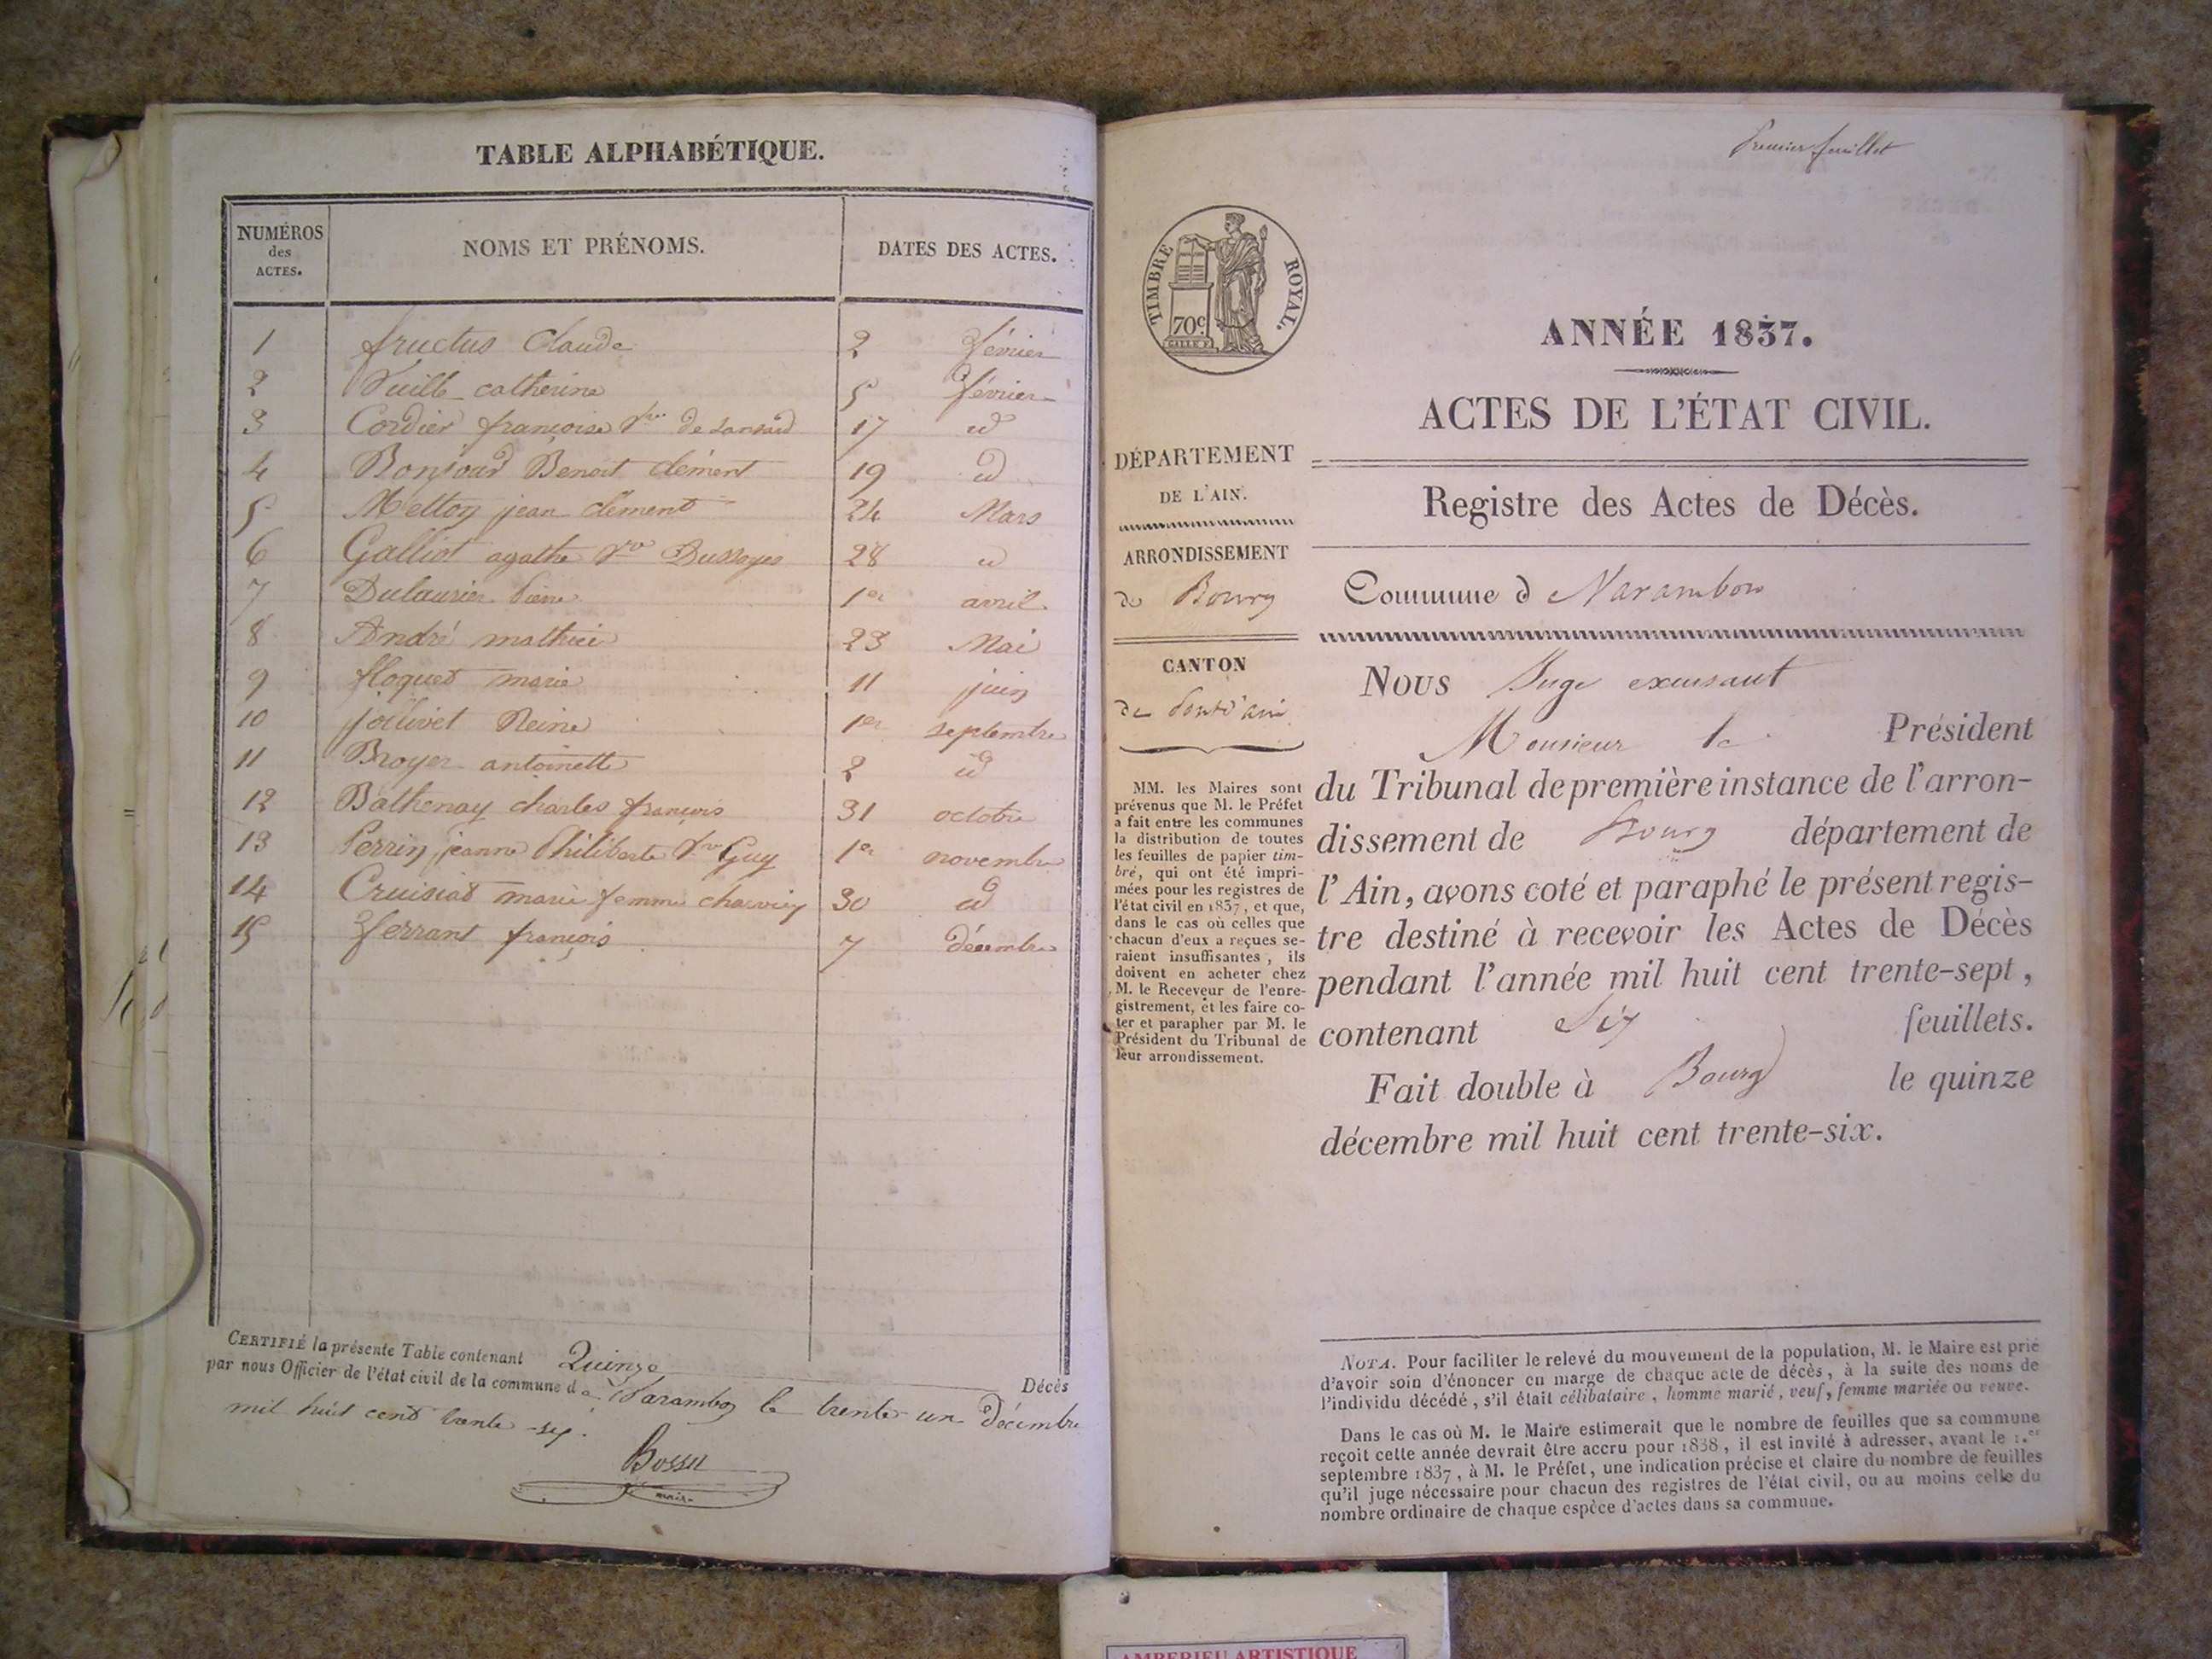 TABLE ALPHABÉTIQUE.
NUMÉROS des ACTES. NOMS ET PRÉNOMS. DATES DES ACTES.
1 fructus Claude 2 février
2 Vuille catherine 5 février
3 Cordier françoise Vve de 17 id
4 Bonjour Benoit clément 19 id
5 Metton jean clément 24 Mars
6 Galliot agathe Vve 28 id
7 Dulaurier Pierre 1er avril
8 André mathieu 23 Mai
9 floquet marie 11 juin
10 jolivet Reine 1er septembre
11 Broyer antoinette 2 id
12 Bathenay charles françois 31 octobre
13 Perrin jeanne Philiberte Vve Guy 1er novembre
14 Cruisiat marie femme 30 id
15 ferrant françois 7 décembre
CERTIFIÉ la présente Table contenant Quinze Décès
par nous Officier de l'état civil de la commune de Varambon le trente un Décembre
mil huit cent trente six.
Bossu
maire
Premier feuillet
TIMBRE ROYAL.
70c.
ANNÉE 1837.
ACTES DE L'ÉTAT CIVIL.
DÉPARTEMENT
DE L'AIN.
ARRONDISSEMENT
de Bourg
CANTON
de Pont d'ain
MM. les Maires sont
prévenus que M. le Préfet
a fait entre les communes
la distribution de toutes
les feuilles de papier tim-
bré, qui ont été impri-
mées pour les registres de
l'état civil en 1837, et que,
dans le cas où celles que
chacun d'eux a reçues se-
raient insuffisantes, ils
doivent en acheter chez
M. le Receveur de l'enre-
gistrement, et les faire co-
ter et parapher par M. le
Président du Tribunal de
leur arrondissement.
Registre des Actes de Décès.
Commune d Varambon
Nous Juge exerçant
Monsieur le Président
du Tribunal de première instance de l'arron-
dissement de Bourg département de
l'Ain, avons coté et paraphé le présent regis-
tre destiné à recevoir les Actes de Décès
pendant l'année mil huit cent trente-sept,
contenant Six feuillets.
Fait double à Bourg le quinze
décembre mil huit cent trente-six.
NOTA. Pour faciliter le relevé du mouvement de la population, M. le Maire est prié
d'avoir soin d'énoncer en marge de chaque acte de décès, à la suite des noms de
l'individu décédé, s'il était célibataire, homme marié, veuf, femme mariée ou veuve.
Dans le cas où M. le Maire estimerait que le nombre de feuilles que sa commune
reçoit cette année devrait être accru pour 1838, il est invité à adresser, avant le 1.er
septembre 1837, à M. le Préfet, une indication précise et claire du nombre de feuilles
qu'il juge nécessaire pour chacun des registres de l'état civil, ou au moins celle du
nombre ordinaire de chaque espèce d'actes dans sa commune.
AMBERIEU ARTISTIQUE